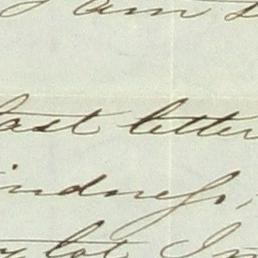 I am
last letter
indness,
lot In